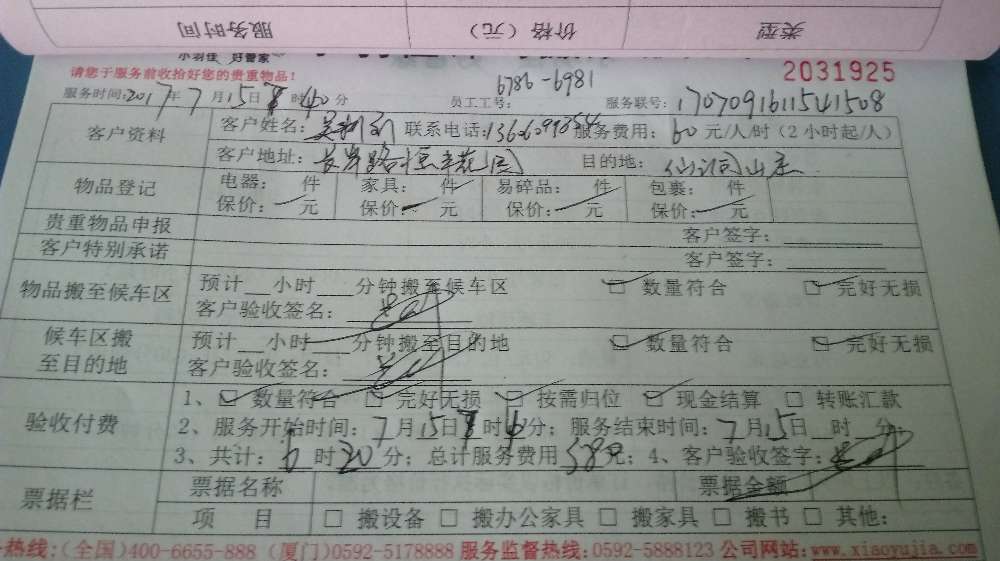 服务时间 价格（元） 类型
小羽佳 好管家
请您于服务前收拾好您的贵重物品！ 6786-6981 2031925
服务时间:2017年7月15日8时40分 员工工号: 服务联号:1707091611541508
客户资料 客户姓名: 联系电话: 服务费用: 60元/人/时（2小时起/人）
客户地址: 长岸路恒丰花园 目的地: 仙洞山庄
物品登记 电器: 件 家具: 件 易碎品: 件 包裹: 件
保价: 元 保价: 元 保价: 元 保价: 元
贵重物品申报 客户签字:
客户特别承诺 客户签字:
物品搬至候车区 预计__小时___分钟搬至候车区 数量符合 完好无损
客户验收签名:
候车区搬至目的地 预计__小时___分钟搬至目的地 数量符合 完好无损
客户验收签名:
验收付费 1、数量符合 完好无损 按需归位 现金结算 转账汇款
2、服务开始时间: 7月15日8时40分; 服务结束时间: 7月15日__时__分;
3、共计: 6时20分; 总计服务费用380元; 4、客户验收签字:
票据栏 票据名称 票据金额
项 目 搬设备 搬办公家具 搬家具 搬书 其他:
热线:(全国)400-6655-888 (厦门)0592-5178888 服务监督热线:0592-5888123 公司网站:www.xiaoyujia.com